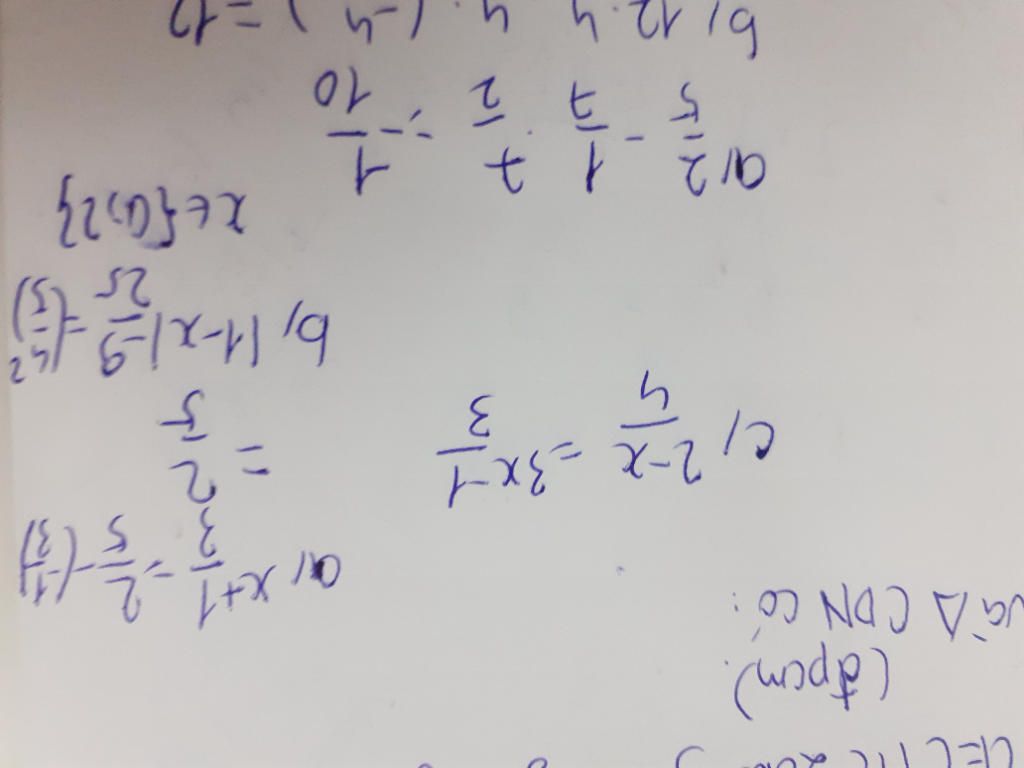 (đpcm)
và Δ CDN có:
a, x + 1/3 = 2/5 - (-1/3)
= 2/5
c, 2-x/4 = 3x-1/3
b, |1-x| - 9/25 = (4/5)²
x∈{0;2}
a, 2/5 - 1/7 . 7/2 = -1/10